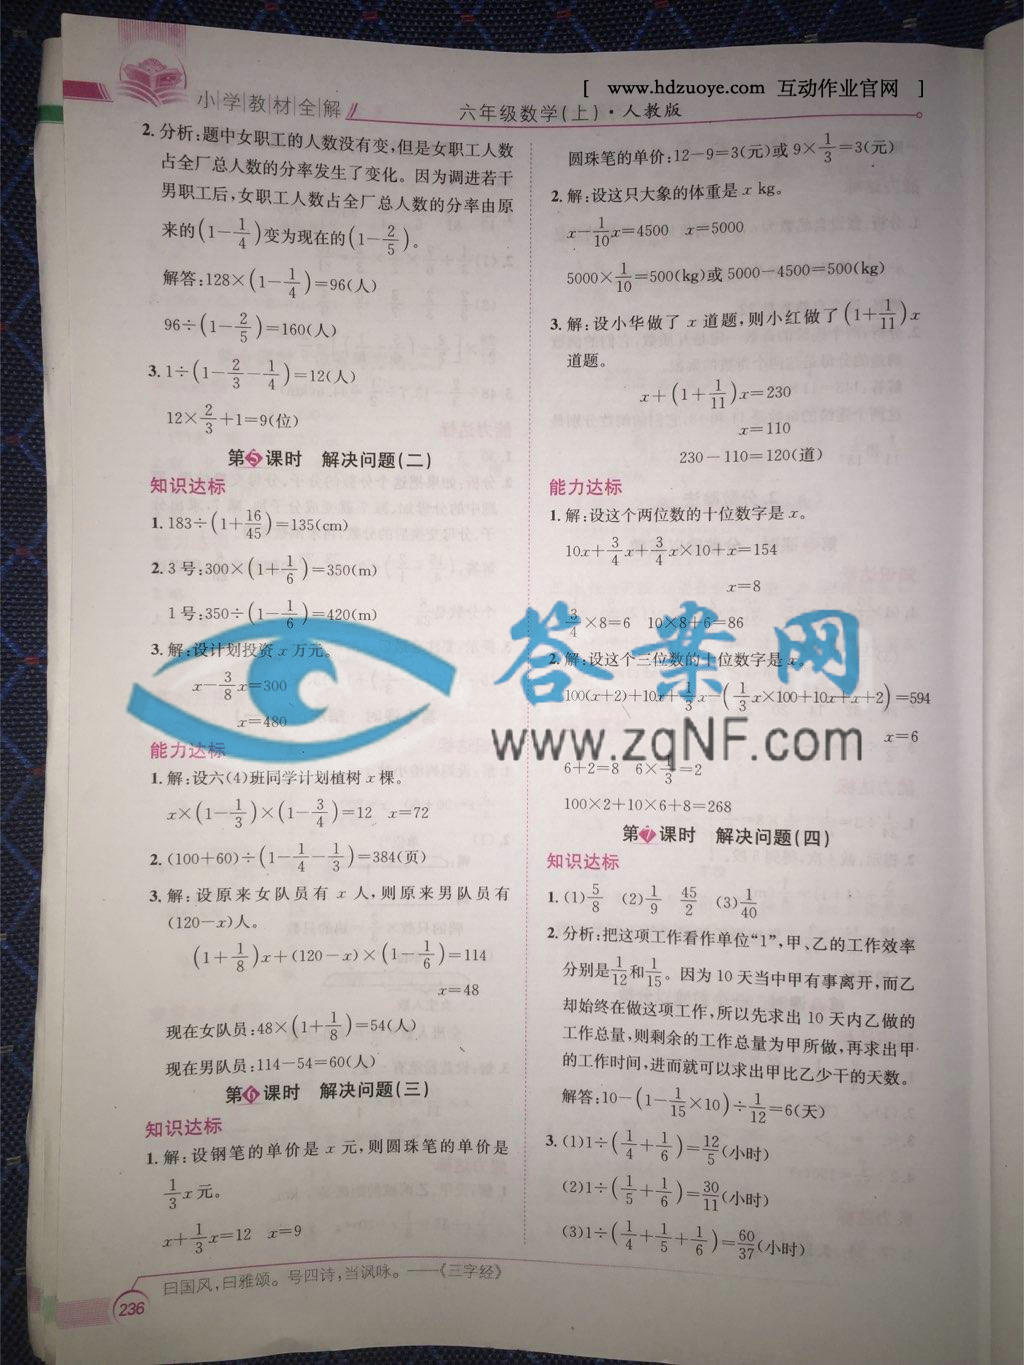 [ www.hdzuoye.com 互动作业官网 ]
小学教材全解
六年级数学(上)·人教版
2. 分析:题中女职工的人数没有变,但是女职工人数
占全厂总人数的分率发生了变化。因为调进若干
男职工后,女职工人数占全厂总人数的分率由原
来的(1-1/4)变为现在的(1-2/5)。
解答:128×(1-1/4)=96(人)
96÷(1-2/5)=160(人)
3. 1÷(1-2/3-1/4)=12(人)
12×2/3+1=9(位)
第5课时 解决问题(二)
知识达标
1. 183÷(1+16/45)=135(cm)
2. 3号:300×(1+1/6)=350(m)
1号:350÷(1-1/6)=420(m)
3. 解:设计划投资x万元。
x-3/8x=300
x=480
能力达标
1. 解:设六(4)班同学计划植树x棵。
x×(1-1/3)×(1-3/4)=12 x=72
2. (100+60)÷(1-1/4-1/3)=384(页)
3. 解:设原来女队员有x人,则原来男队员有
(120-x)人。
(1+1/8)x+(120-x)×(1-1/6)=114
x=48
现在女队员:48×(1+1/8)=54(人)
现在男队员:114-54=60(人)
第6课时 解决问题(三)
知识达标
1. 解:设钢笔的单价是x元,则圆珠笔的单价是
1/3x元。
x+1/3x=12 x=9
圆珠笔的单价:12-9=3(元)或9×1/3=3(元)
2. 解:设这只大象的体重是x kg。
x-1/10x=4500 x=5000
5000×1/10=500(kg)或5000-4500=500(kg)
3. 解:设小华做了x道题,则小红做了(1+1/11)x
道题。
x+(1+1/11)x=230
x=110
230-110=120(道)
能力达标
1. 解:设这个两位数的十位数字是x。
10x+3/4x+3/4x×10+x=154
x=8
3/4×8=6 10×8+6=86
2. 解:设这个三位数的十位数字是x。
100(x+2)+10x+1/3x-(1/3x×100+10x+x+2)=594
x=6
6+2=8 6×1/3=2
100×2+10×6+8=268
第7课时 解决问题(四)
知识达标
1. (1)5/8 (2)1/9 45/2 (3)1/40
2. 分析:把这项工作看作单位“1”,甲、乙的工作效率
分别是1/12和1/15。因为10天当中甲有事离开,而乙
却始终在做这项工作,所以先求出10天内乙做的
工作总量,则剩余的工作总量为甲所做,再求出甲
的工作时间,进而就可以求出甲比乙少干的天数。
解答:10-(1-1/15×10)÷1/12=6(天)
3. (1)1÷(1/4+1/6)=12/5(小时)
(2)1÷(1/5+1/6)=30/11(小时)
(3)1÷(1/4+1/5+1/6)=60/37(小时)
答案网
www.zqNF.com
曰国风,曰雅颂。号四诗,当讽咏。——《三字经》
236